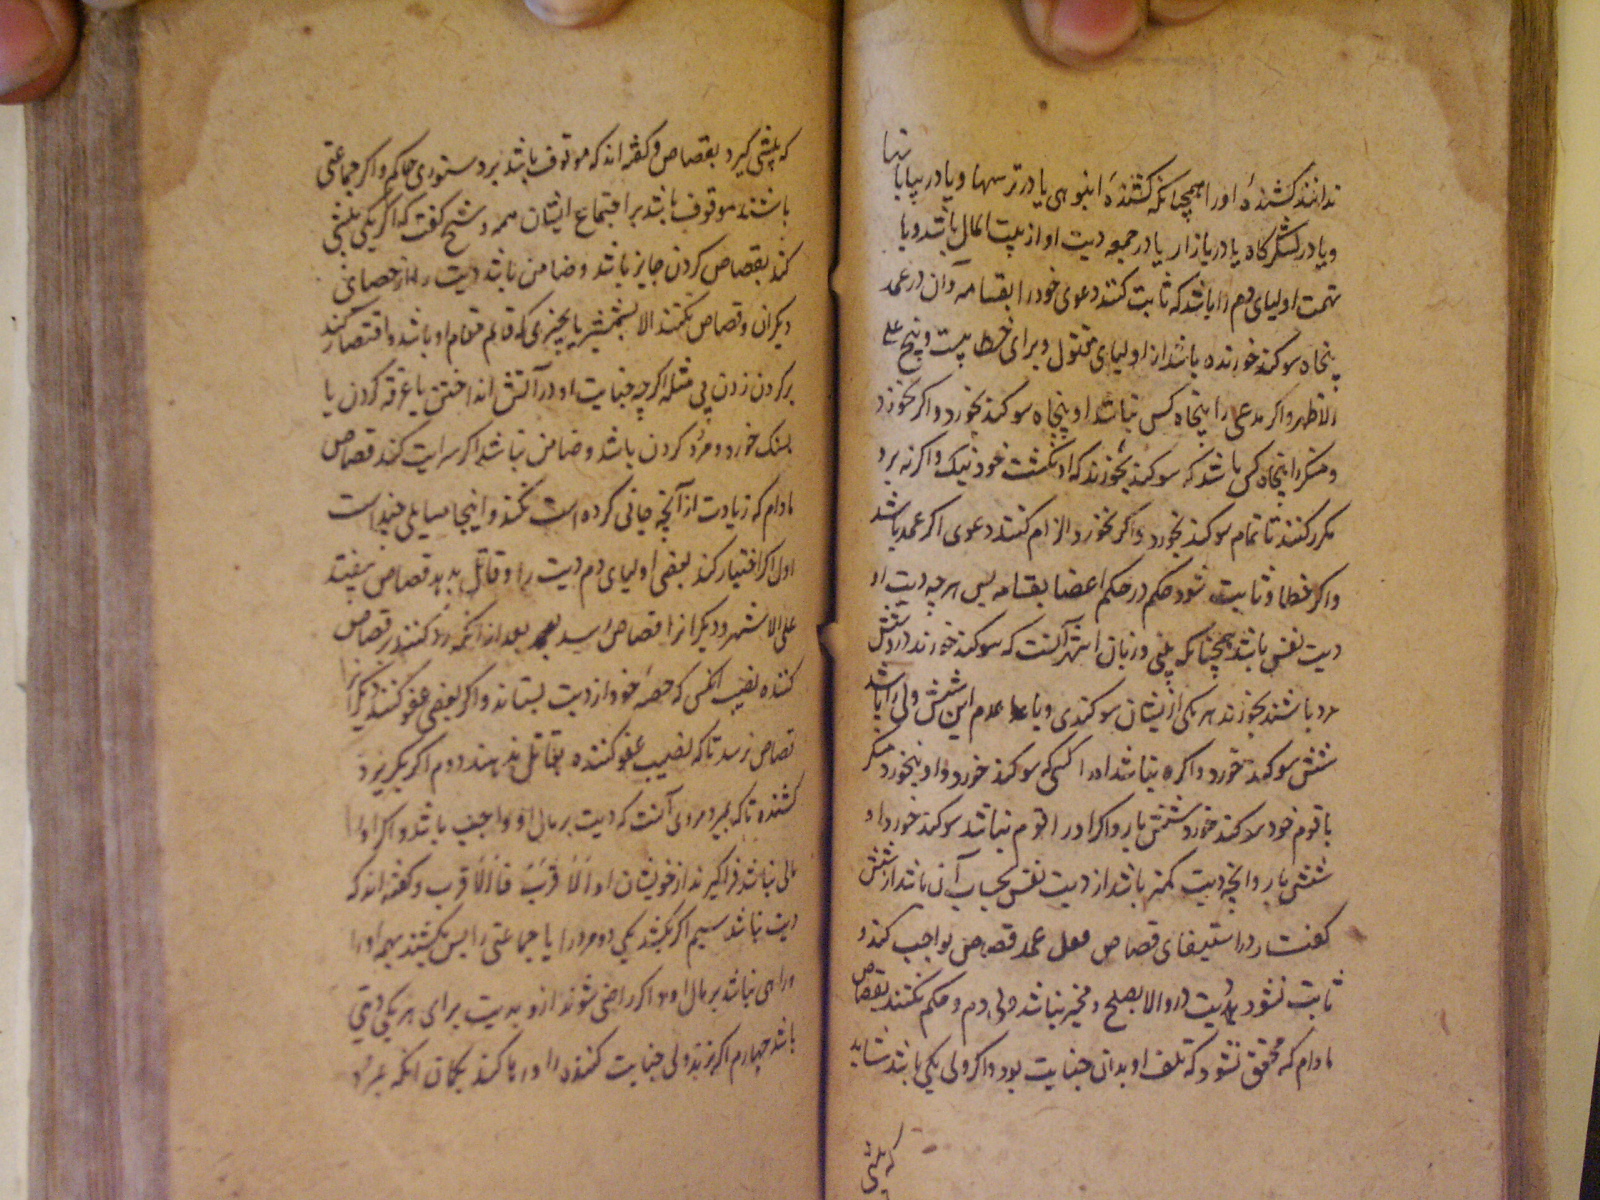 ندانند کشندهٔ او را همچنانکه کشندهٔ انبوهی یا در ترسها و یا در بیابانها
و یا در لشکرگاه یا در بازار یا در جمعه دیت او از بیت المال باشد و با
تهمت اولیای دم را باشد که ثابت کنند دعوی خود را بقسامه و آن در عمد
پنجاه سوکند خورنده باشد از اولیای مقتول و برای خطا بیست و پنج علی
الاظهر و اکر مدعی را پنجاه کس نباشد او پنجاه سوکند بخورد و اکر نخورد
و منکر را پنجاه کس باشد که سوکند بخورند که او نکشت فهو نیک و اکر نه برو
مکرر کنند تا تمام سوکند بخورد و اکر نخورد الزام کنند دعوی اکر عمد باشد
و اکر خطا و ثابت شود حکم در حکم اعضا بقسامه پس هر چه دیت او
دیت نفس باشد همچنانکه بینی و زبان اشهر آنست که سوکند خورند درو شش
مرد باشند بخورند هر یکی ازیشان سوکندی و با عدم این شش ولی را باشد
شش سوکند خورد و اکر نباشد او را کسی که سوکند خورد و او نخورد منکر
با قوم خود سوکند خورد شش بار و اکر او را قوم نباشد سوکند خورد او
شش بار و آنچه دیت کمتر باشد از دیت نفس بحساب آن باشد از شش
کفتار در استیفای قصاص فعل عمد قصاص واجب کند و
ثابت نشود دیت درو الا بصلح و مخیر نباشد ولی دم و حکم نکنند بقصاص
مادام که محقق نشود که تلف او بدان جنایت بود و اکر ولی یکی باشد شاید
که پیشی
که پیشی کیرد بقصاص و کفته اند که موقوف باشد بر دستوری حاکم و اکر جماعتی
باشند موقوف باشد بر اجتماع ایشان همه و شیخ کفت که اکر یکی پیشی
کند بقصاص کردن جایز باشد و ضامن باشد دیت را از حصهای
دیکران و قصاص نکنند الا بشمشیر یا بچیزی که قایم مقام او باشد و اقتصار کند
بر کردن زدن بی مثله اکر چه جنایت او در آتش انداختن یا غرقه کردن یا
بسنک خورد و مرد کردن باشد و ضامن نباشد اکر سرایت کند قصاص
مادام که زیادت از آنچه جانی کرده است نکند و اینجا مسایلی چند است
اول اکر اختیار کند بعضی اولیای دم دیت را و قاتل بدهد قصاص نیفتد
علی الاشهر و دیکرانرا قصاص رسد بعد از آنکه رد کنند بر قصاص
کننده نصیب آنکس که حصهٔ خود از دیت بستاند و اکر بعضی عفو کنند دیکرانرا
قصاص نرسد تا که نصیب عفو کننده بقاتل ندهند دوم اکر بکریزد
کشنده تا که بمیرد مروی آنست که دیت بر مال او واجب باشد و اکر او را
مالی نباشد فرا کیرند از خویشان او الاقرب فالاقرب و کفته اند که
دیت نباشد سیم اکر بکشد یکی دو مرد را یا جماعتی را پس بکشند بهمه او را
و راهی نباشد بر مال او و اکر راضی شوند ازو بدیت برای هر یکی دیتی
باشد چهارم اکر بزند ولی جنایت کننده را و رها کند بکمان آنکه بمرد